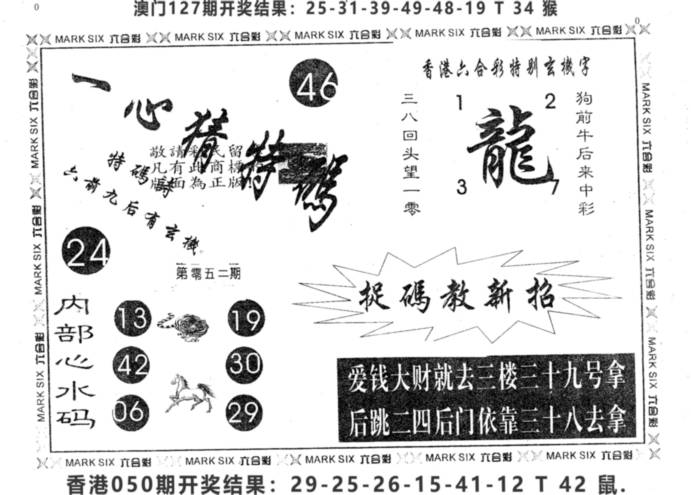 澳门127期开奖结果：25-31-39-49-48-19 T 34 猴
0
0
MARK SIX 六合彩 MARK SIX 六合彩 MARK SIX 六合彩 MARK SIX 六合彩 MARK SIX 六合彩
一心猜特碼
46
敬請彩民留
凡有此商標
版面為正版!
特碼詩
六前九后有玄機
24
第零五二期
内部心水码
13
19
42
30
06
29
香港六合彩特别玄機字
三八回头望一零
1
2
龍
3
7
狗前牛后来中彩
捉碼教新招
爱钱大财就去三楼三十九号拿
后跳二四后门依靠三十八去拿
MARK SIX 六合彩
MARK SIX 六合彩
MARK SIX 六合彩
MARK SIX 六合彩
MARK SIX 六合彩
MARK SIX 六合彩
MARK SIX 六合彩 MARK SIX 六合彩 MARK SIX 六合彩 MARK SIX 六合彩 MARK SIX 六合彩
香港050期开奖结果：29-25-26-15-41-12 T 42 鼠.